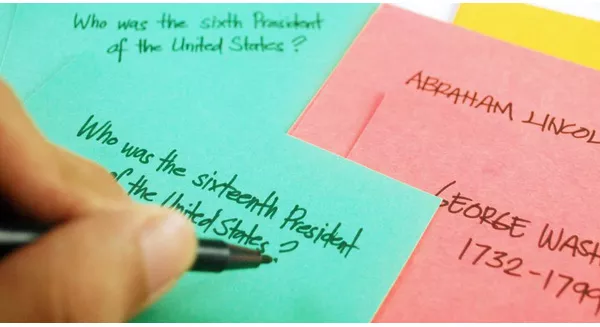 Who was the sixth President
of the United States?
Who was the sixteenth President
of the United States?
ABRAHAM LINCOL
GEORGE WASH
1732-1799